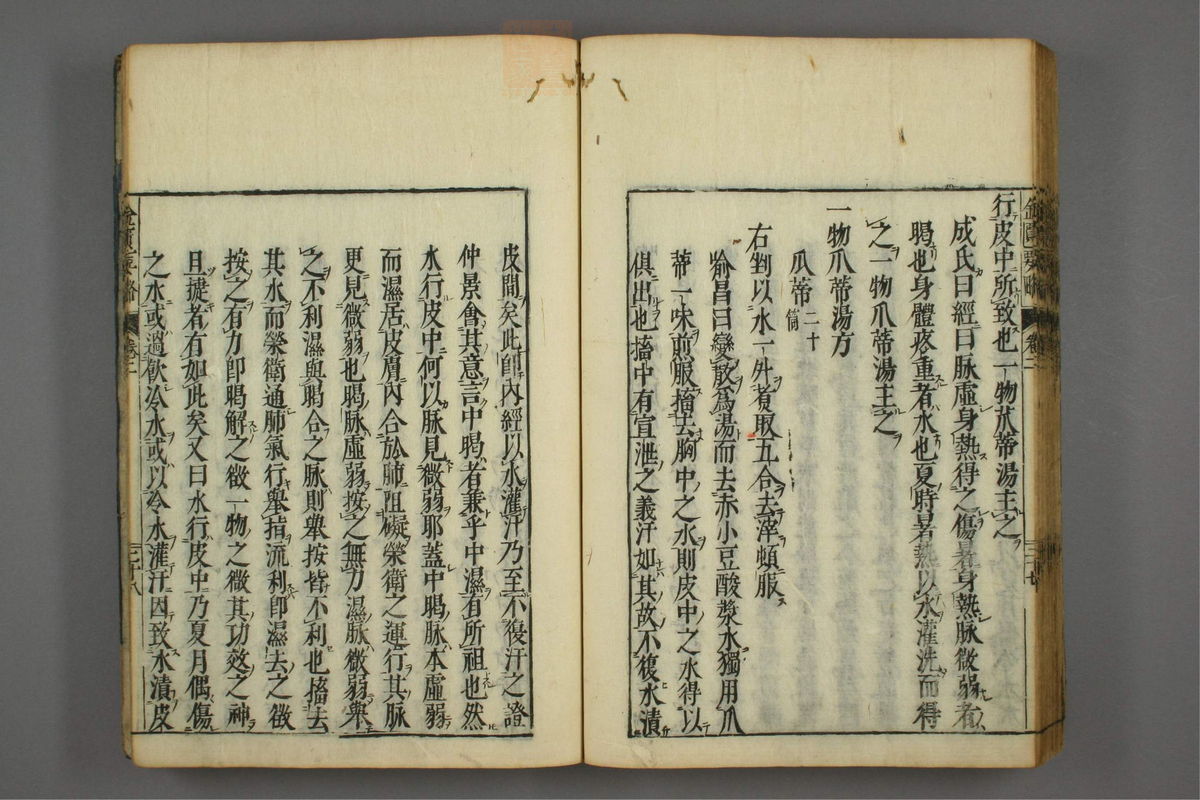 行皮中所致也一物瓜蒂湯主之
成氏曰經曰脉虛身熱得之傷暑身熱脉微弱者
暍也身體疼重者水也夏時暑熱以水灌洗而得
之一物瓜蒂湯主之
一物瓜蒂湯方
瓜蒂二十箇
右剉以水一升煮取五合去滓頓服
喻昌曰變散爲湯而去赤小豆酸漿水獨用瓜
蒂一味煎服搐去胸中之水則皮中之水得以
俱出也搐中有宣泄之義汗如其故不復水漬
皮間矣此卽內經以水灌汗乃至不復汗之證
仲景會其意言中暍者兼乎中濕有所祖也然
水行皮中何以脉見微弱耶蓋中暍脉本虛弱
而濕居皮膚內合於肺阻礙榮衛之運行其脉
更見微弱也暍脉虛弱按之無力濕脉微弱舉
之不利濕與暍合之脉則舉按皆不利也搐去
其水而榮衛通肺氣行舉指流利卽濕去之徵
按之有力卽暍解之徵一物之微其功效之神
且捷者有如此矣又曰水行皮中乃夏月偶傷
之水或過飲冷水或以冷水灌汗因致水漬皮